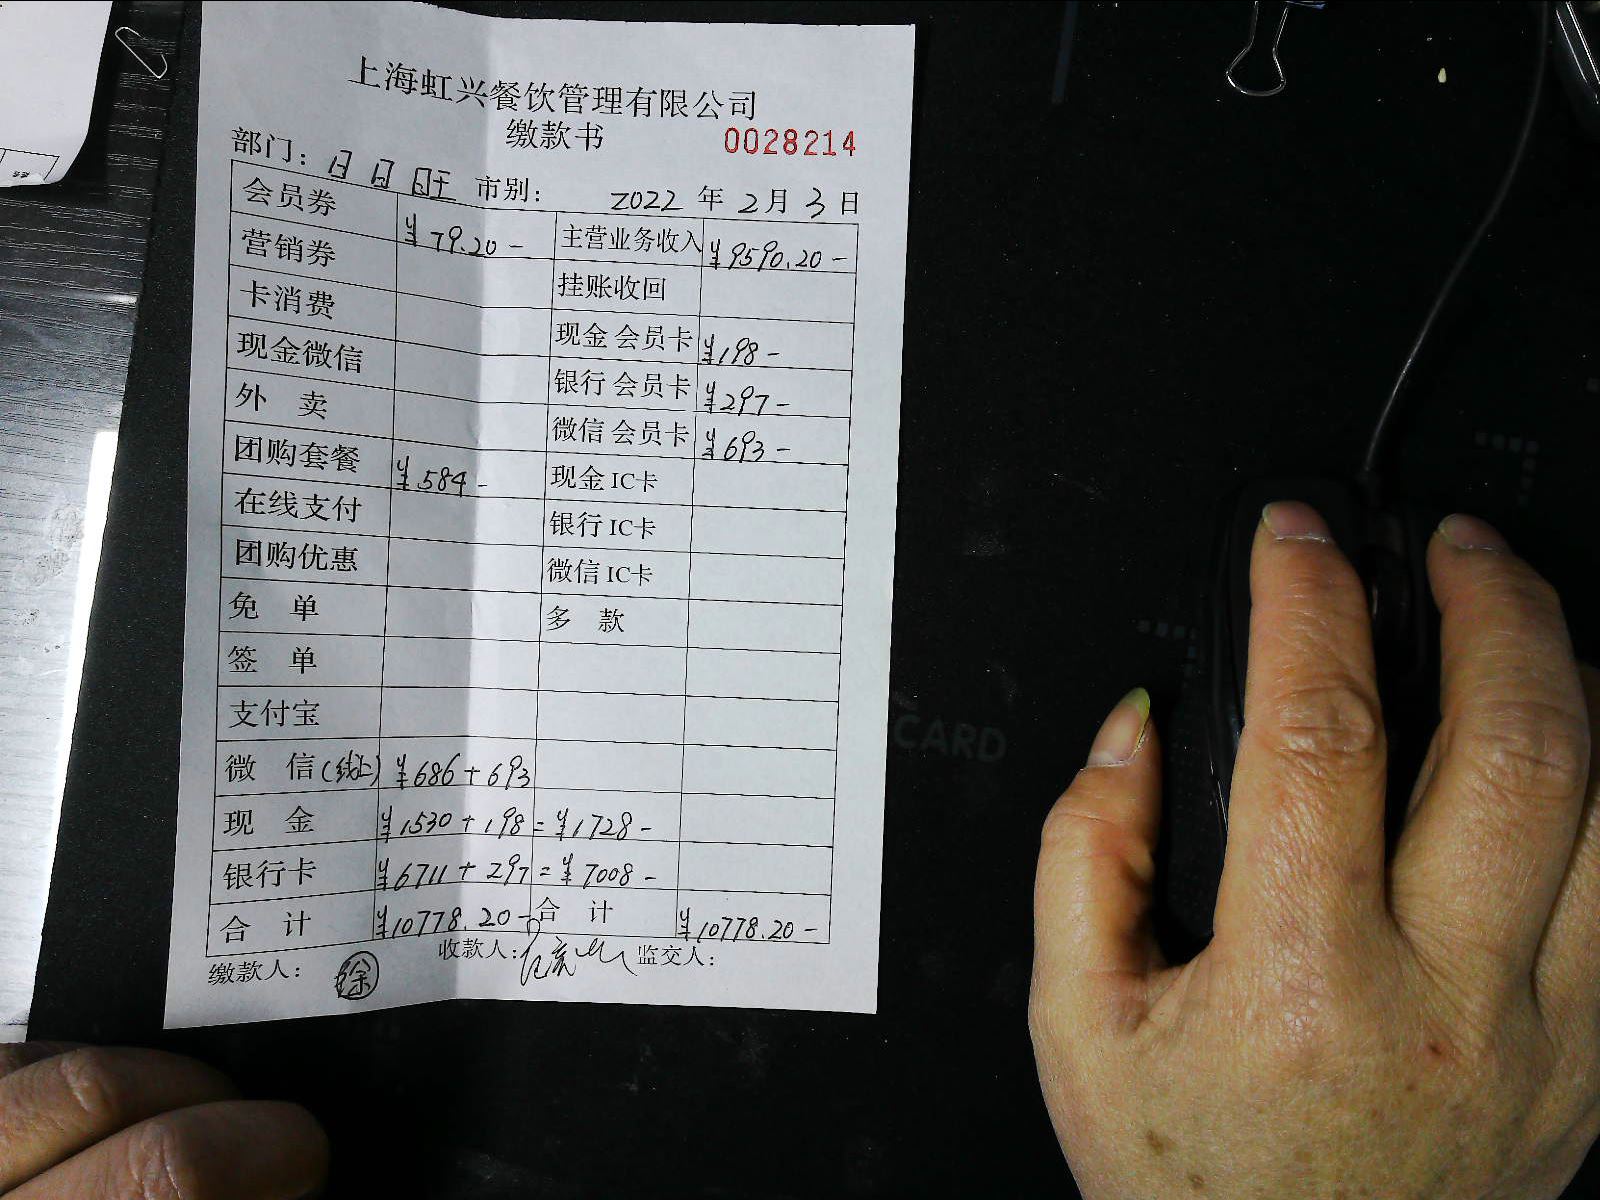 上海虹兴餐饮管理有限公司
缴款书 0028214
部门: 日日旺 市别: 2022年2月3日
会员券 ¥79.20- 主营业务收入 ¥9590.20-
营销券 挂账收回
卡消费 现金会员卡 ¥198-
现金微信 银行会员卡 ¥297-
外卖 微信会员卡 ¥693-
团购套餐 ¥584- 现金IC卡
在线支付 银行IC卡
团购优惠 微信IC卡
免单 多款
签单
支付宝
微信(线上) ¥686+693
现金 ¥1530+198=¥1728-
银行卡 ¥6711+297=¥7008-
合计 ¥10778.20- 合计 ¥10778.20-
缴款人: 徐 收款人: 监交人:
CARD